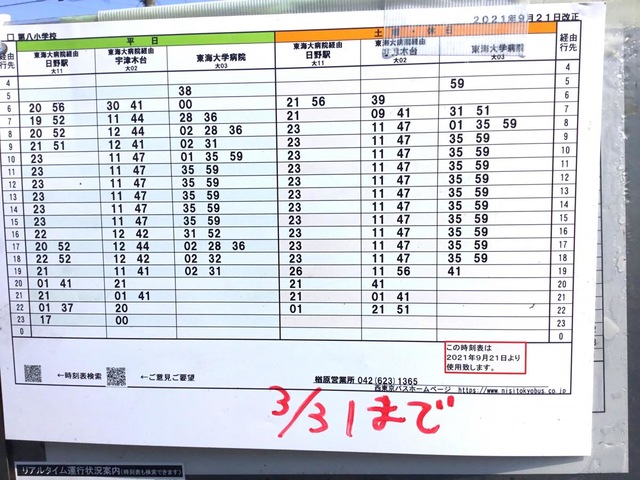 2021年9月21日改正
第八小学校
経由 行先 平日 土曜・休日 経由 行先
東海大病院経由 日野駅 大11 東海大病院経由 宇津木台 大02 東海大学病院 大03 東海大病院経由 日野駅 大11 東海大病院経由 宇津木台 大02 東海大学病院 大03
4 4
5 38 59 5
6 20 56 30 41 00 21 56 39 6
7 19 52 11 44 28 36 21 09 41 31 51 7
8 20 52 12 44 02 28 36 23 11 47 01 35 59 8
9 21 51 12 41 02 31 23 11 47 35 59 9
10 23 11 47 01 35 59 23 11 47 35 59 10
11 23 11 47 35 59 23 11 47 35 59 11
12 23 11 47 35 59 23 11 47 35 59 12
13 23 11 47 35 59 23 11 47 35 59 13
14 23 11 47 35 59 23 11 47 35 59 14
15 23 11 47 35 59 23 11 47 35 59 15
16 22 12 42 31 52 23 11 47 35 59 16
17 20 52 12 44 02 28 36 23 11 47 35 59 17
18 22 52 12 42 02 32 23 11 47 35 59 18
19 21 11 41 02 31 26 11 56 41 19
20 01 41 21 21 41 20
21 21 01 41 21 01 41 21
22 01 37 20 01 21 51 22
23 17 00 23
0 0
この時刻表は
2021年9月21日より
使用致します。
←時刻表検索 ←ご意見ご要望
楢原営業所 042(623)1365
西東京バスホームページ https://www.nisitokyobus.co.jp
3/31まで
リアルタイム運行状況案内(時刻表も検索できます)